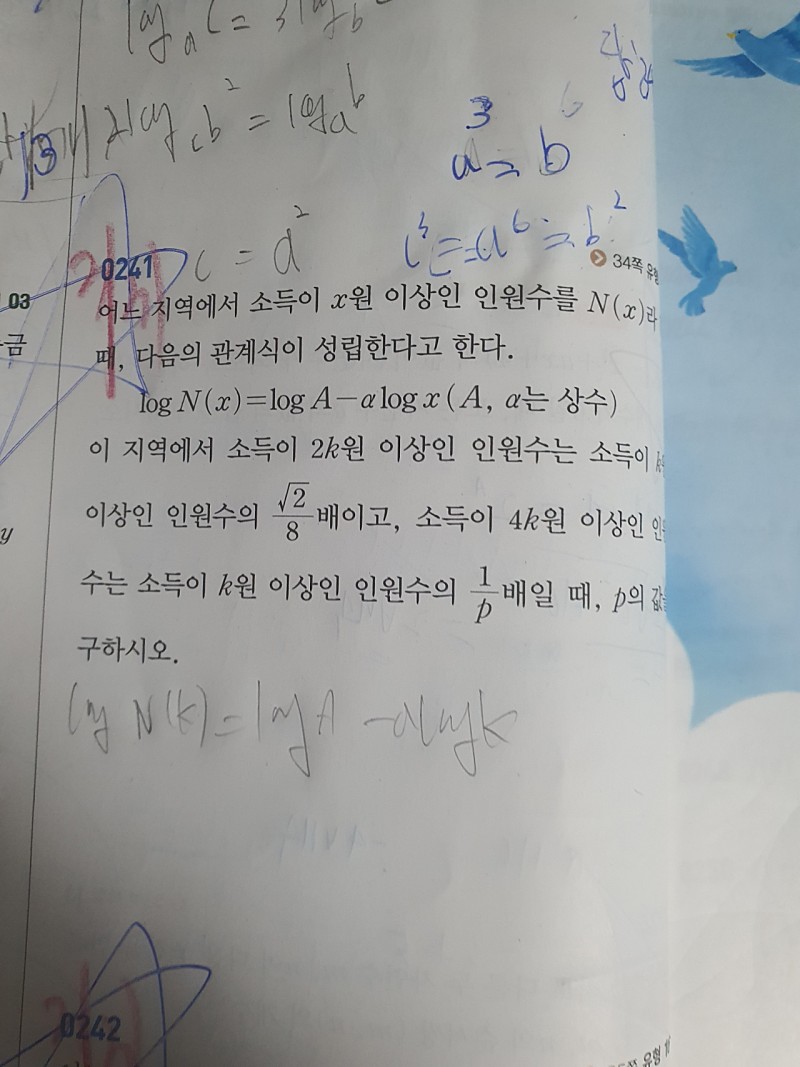 log_a c = 3log_b
log_c b² = log_a b
a³ = b
6
13
c = a²
c³ = a⁶ = b²
0241
34쪽 유형
03
금
어느 지역에서 소득이 x원 이상인 인원수를 N(x)라
때, 다음의 관계식이 성립한다고 한다.
log N(x)=log A-αlog x (A, α는 상수)
이 지역에서 소득이 2k원 이상인 인원수는 소득이 k
이상인 인원수의 √2/8배이고, 소득이 4k원 이상인 인
y
수는 소득이 k원 이상인 인원수의 1/p배일 때, p의 값
구하시오.
log N(k) = log A - αlog k
0242
쪽 유형 1